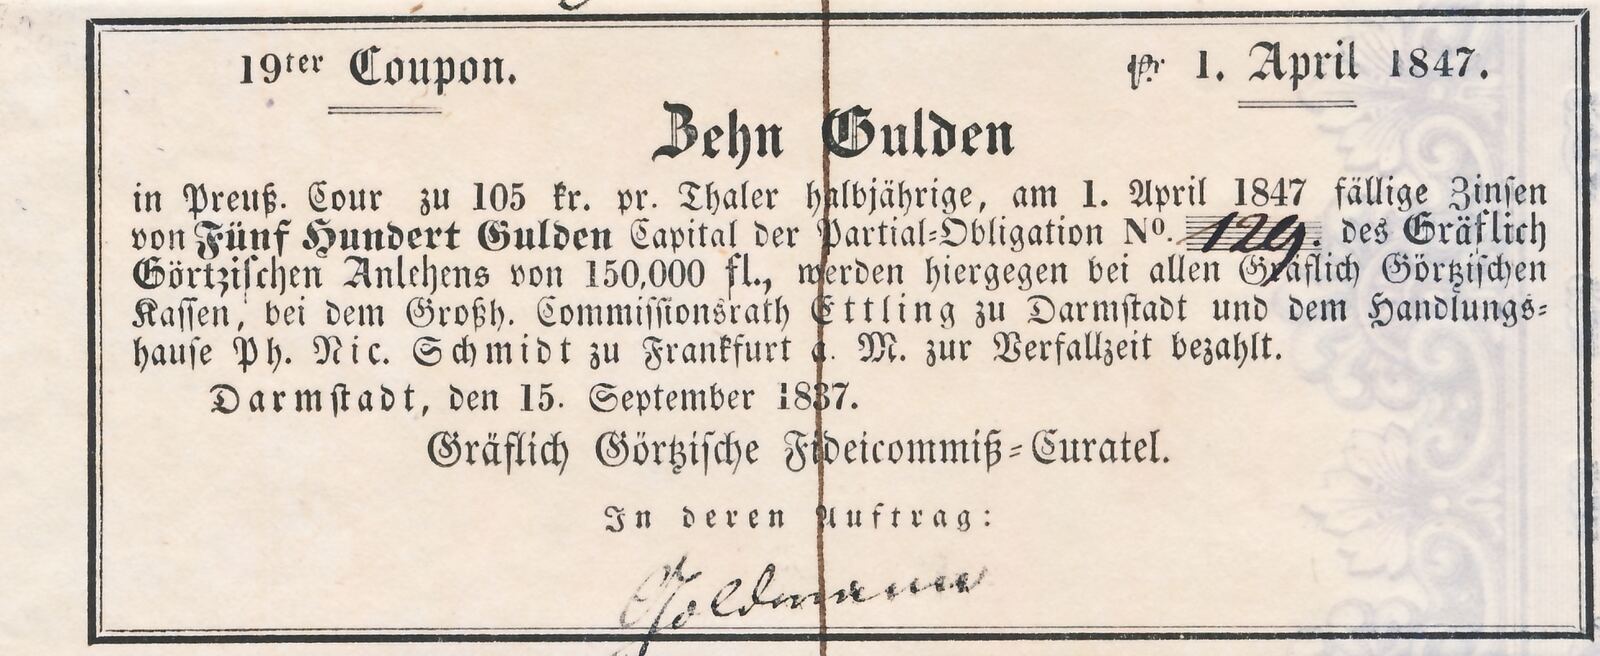 19ter Coupon. pr 1. April 1847.
Zehn Gulden
in Preuß. Cour zu 105 kr. pr. Thaler halbjährige, am 1. April 1847 fällige Zinsen
von Fünf Hundert Gulden Capital der Partial-Obligation No. 129. des Gräflich
Görtzischen Anlehens von 150,000 fl., werden hiergegen bei allen Gräflich Görtzischen
Kassen, bei dem Großh. Commissionsrath Ettling zu Darmstadt und dem Handlungs-
hause Ph. Nic. Schmidt zu Frankfurt a. M. zur Verfallzeit bezahlt.
Darmstadt, den 15. September 1837.
Gräflich Görtzische Fideicommiß-Curatel.
In deren Auftrag:
Goldmann